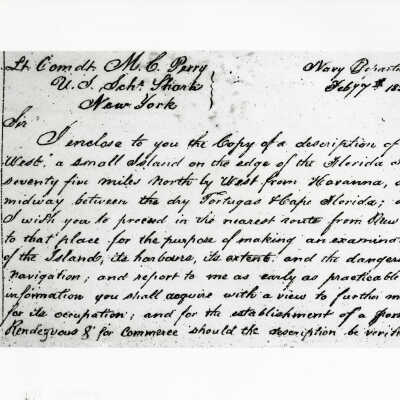 Lt Comdt. M. C. Perry
U. S. Schr Shark
New York
Navy
Feby 7th 18
Sir
I enclose to you the Copy of a description of
West," a small Island on the edge of the Florida
seventy five miles North by West from Havanna,
midway between the dry Tortugas & Cape Florida;
I wish you to proceed in the nearest route from New
to that place for the purpose of making an
of the Islands, its harbours, its extent and the dangers
navigation; and report to me as early as practicable
information you shall acquire with a view to further
for its occupation; and for the establishment of a
Rendezvous & for Commerce should the description be